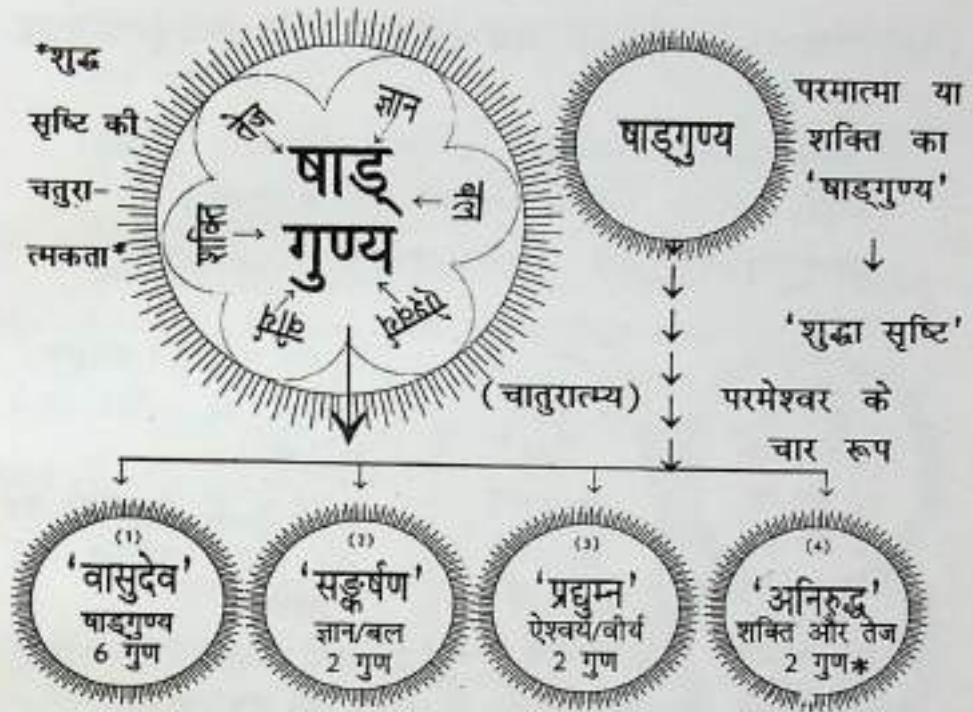 *शुद्ध
सृष्टि की
चतुरा-
त्मकता*
तेज
ज्ञान
षाड्
गुण्य
बल
शक्ति
वीर्य
ऐश्वर्य
षाड्गुण्य
परमात्मा या
शक्ति का
'षाड्गुण्य'
'शुद्धा सृष्टि'
(चातुरात्म्य)
परमेश्वर के
चार रूप
(1)
'वासुदेव'
षाड्गुण्य
6 गुण
(2)
'सङ्कर्षण'
ज्ञान/बल
2 गुण
(3)
'प्रद्युम्न'
ऐश्वर्य/वीर्य
2 गुण
(4)
'अनिरुद्ध'
शक्ति और तेज
2 गुण*